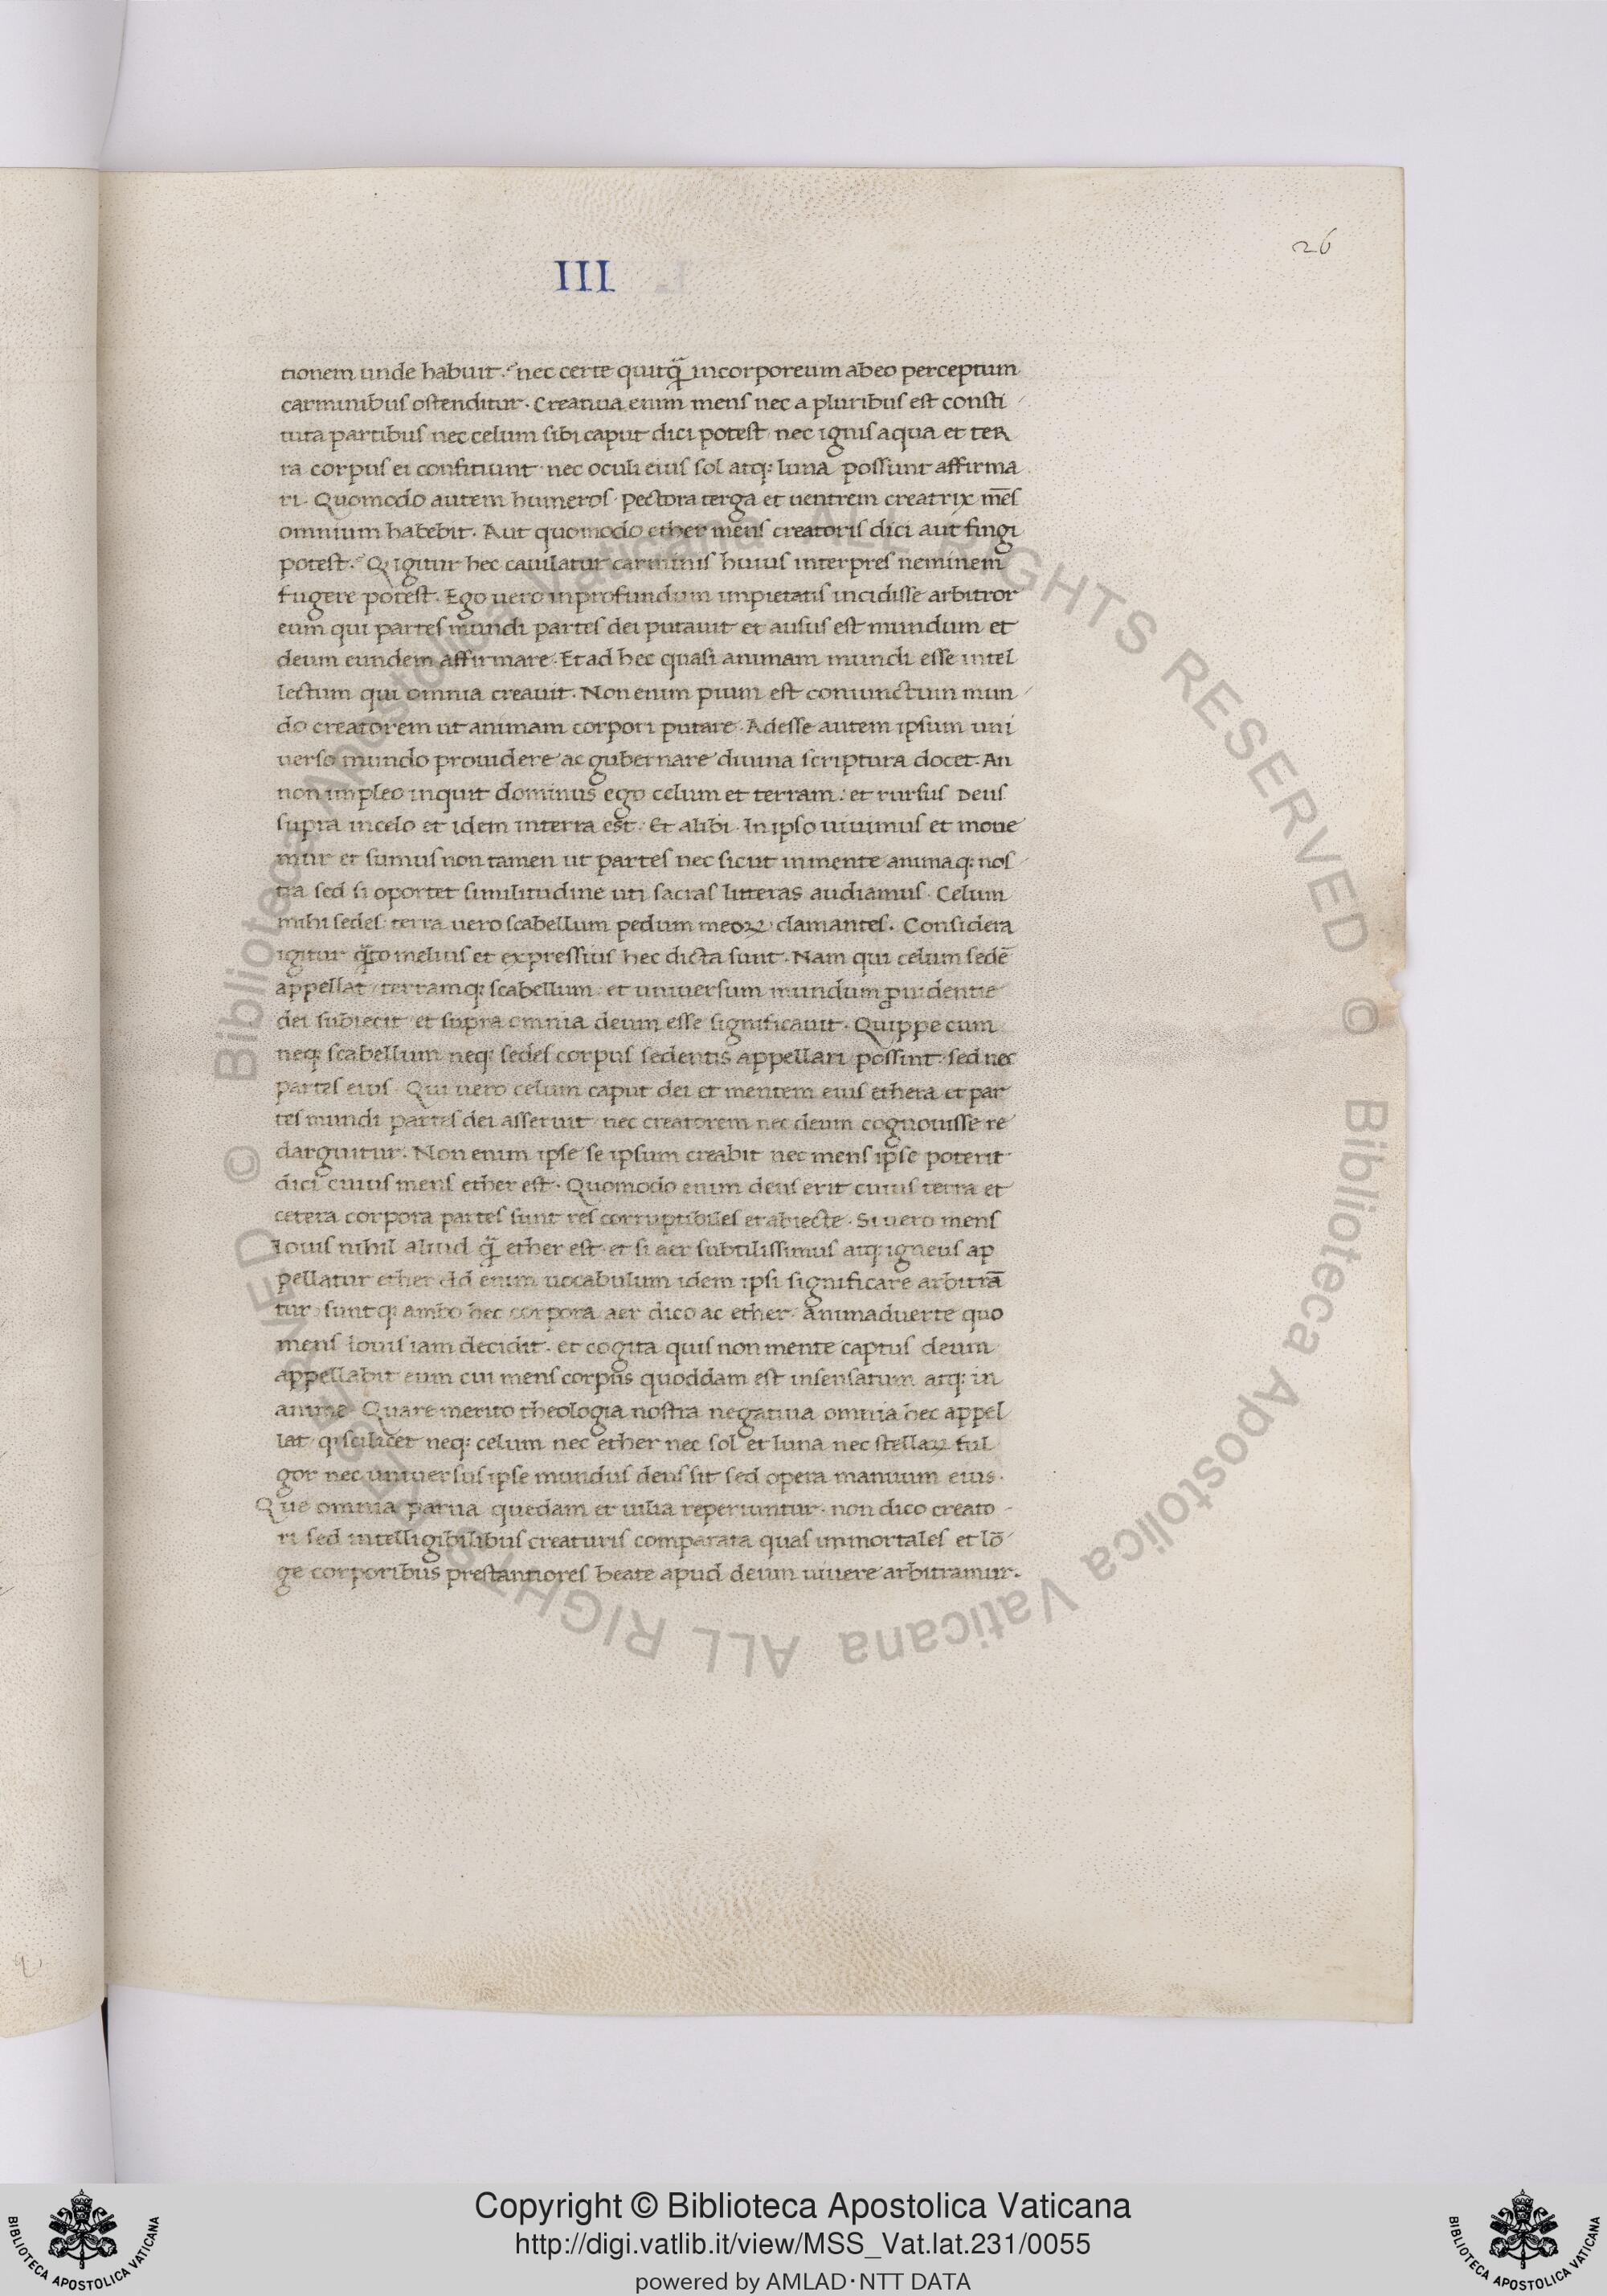 26
III
tionem unde habuit. nec certe quitq̃ incorporeum ab eo perceptum
carminibus ostenditur. Creatiua enim mens nec a pluribus est consti
tuta partibus nec celum sibi caput dici potest nec ignis aqua et ter
ra corpus ei confitiunt nec oculi eius sol atq: luna possunt affirma
ri. Quomodo autem humeros pectora terga et uentrem creatrix mēs
omnium habebit. Aut quomodo ether mens creatoris dici aut fingi
potest. Q igitur hec cauilatur carminis huius interpres neminem
fugere potest. Ego uero in profundum impietatis incidisse arbitror
eum qui partes mundi partes dei putauit et ausus est mundum et
deum eundem affirmare. Et ad hec quasi animam mundi esse intel
lectum qui omnia creauit. Non enim pium est coniunctum mun
do creatorem ut animam corpori putare. Adesse autem ipsum uni
uerso mundo prouidere ac gubernare diuina scriptura docet. An
non impleo inquit dominus ego celum et terram: et rursus Deus
supra in celo et idem in terra est. Et alibi. In ipso uiuimus et moue
mur et sumus non tamen ut partes nec sicut in mente animaq: nos
tra sed si oportet similitudine uti sacras litteras audiamus. Celum
mihi sedes terra uero scabellum pedum meoꝝ clamantes. Considera
igitur q̃to melius et expressius hec dicta sunt. Nam qui celum sedē
appellat terramq: scabellum et uniuersum mundum ꝓuidentie
dei subiecit et supra omnia deum esse significauit. Quippe cum
neq: scabellum neq: sedes corpus sedentis appellari possint sed nec
partes eius. Qui uero celum caput dei et mentem eius ethera et par
tes mundi partes dei asseruit nec creatorem nec deum cognouisse re
darguitur. Non enim ipse se ipsum creabit nec mens ipse poterit
dici cuius mens ether est. Quomodo enim deus erit cuius terra et
cetera corpora partes sunt res corruptibiles et abiecte. Si uero mens
Iouis nihil aliud q̃ ether est et si aer subtilissimus atq: igneus ap
pellatur ether id enim uocabulum idem ipsi significare arbitrā
tur suntq: ambo hec corpora aer dico ac ether. animaduerte quo
mens Iouis iam decidit. et cogita quis non mente captus deum
appellabit eum cui mens corpus quoddam est insensatum atq: in
anime Quare merito theologia nostra negatiua omnia hec appel
lat q: scilicet neq: celum nec ether nec sol et luna nec stellaꝝ ful
gor nec uniuersus ipse mundus deus sit sed opera manuum eius.
Que omnia parua quedam et uilia reperiuntur. non dico creato
ri sed intelligibilibus creaturis comparata quas immortales et lō
ge corporibus prestantiores beate apud deum uiuere arbitramur.
© Biblioteca Apostolica Vaticana ALL RIGHTS RESERVED © Biblioteca Apostolica Vaticana ALL RIGHTS RESERVED
Copyright © Biblioteca Apostolica Vaticana
http://digi.vatlib.it/view/MSS_Vat.lat.231/0055
powered by AMLAD·NTT DATA
BIBLIOTECA APOSTOLICA VATICANA
BIBLIOTECA APOSTOLICA VATICANA